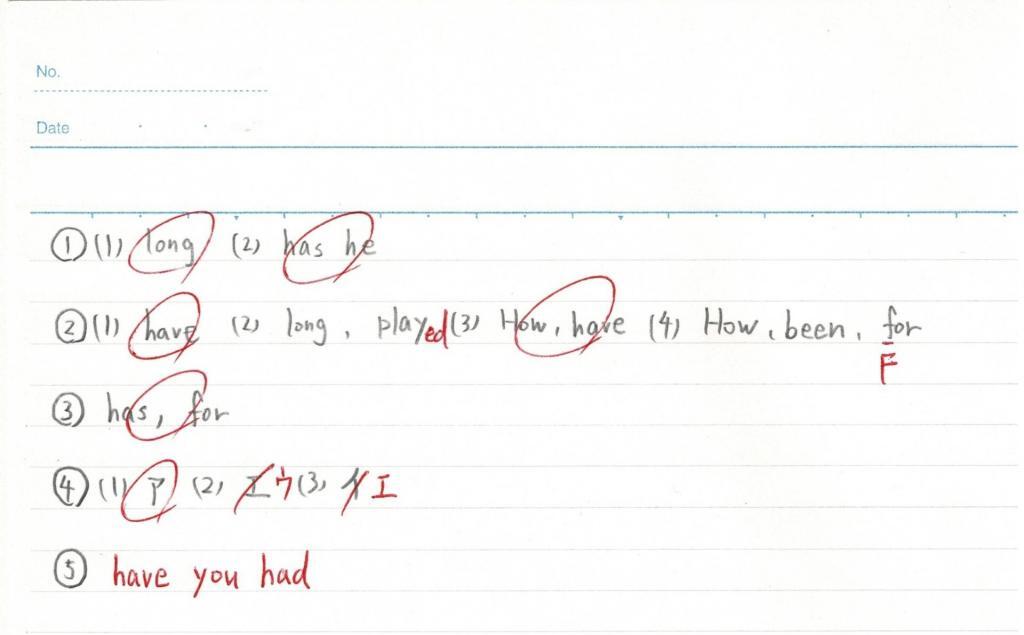 No.
Date
①(1) long (2) has he
②(1) have (2) long, played (3) How, have (4) How, been, for
F
③ has, for
④(1) ア (2) エ ウ (3) イ エ
⑤ have you had